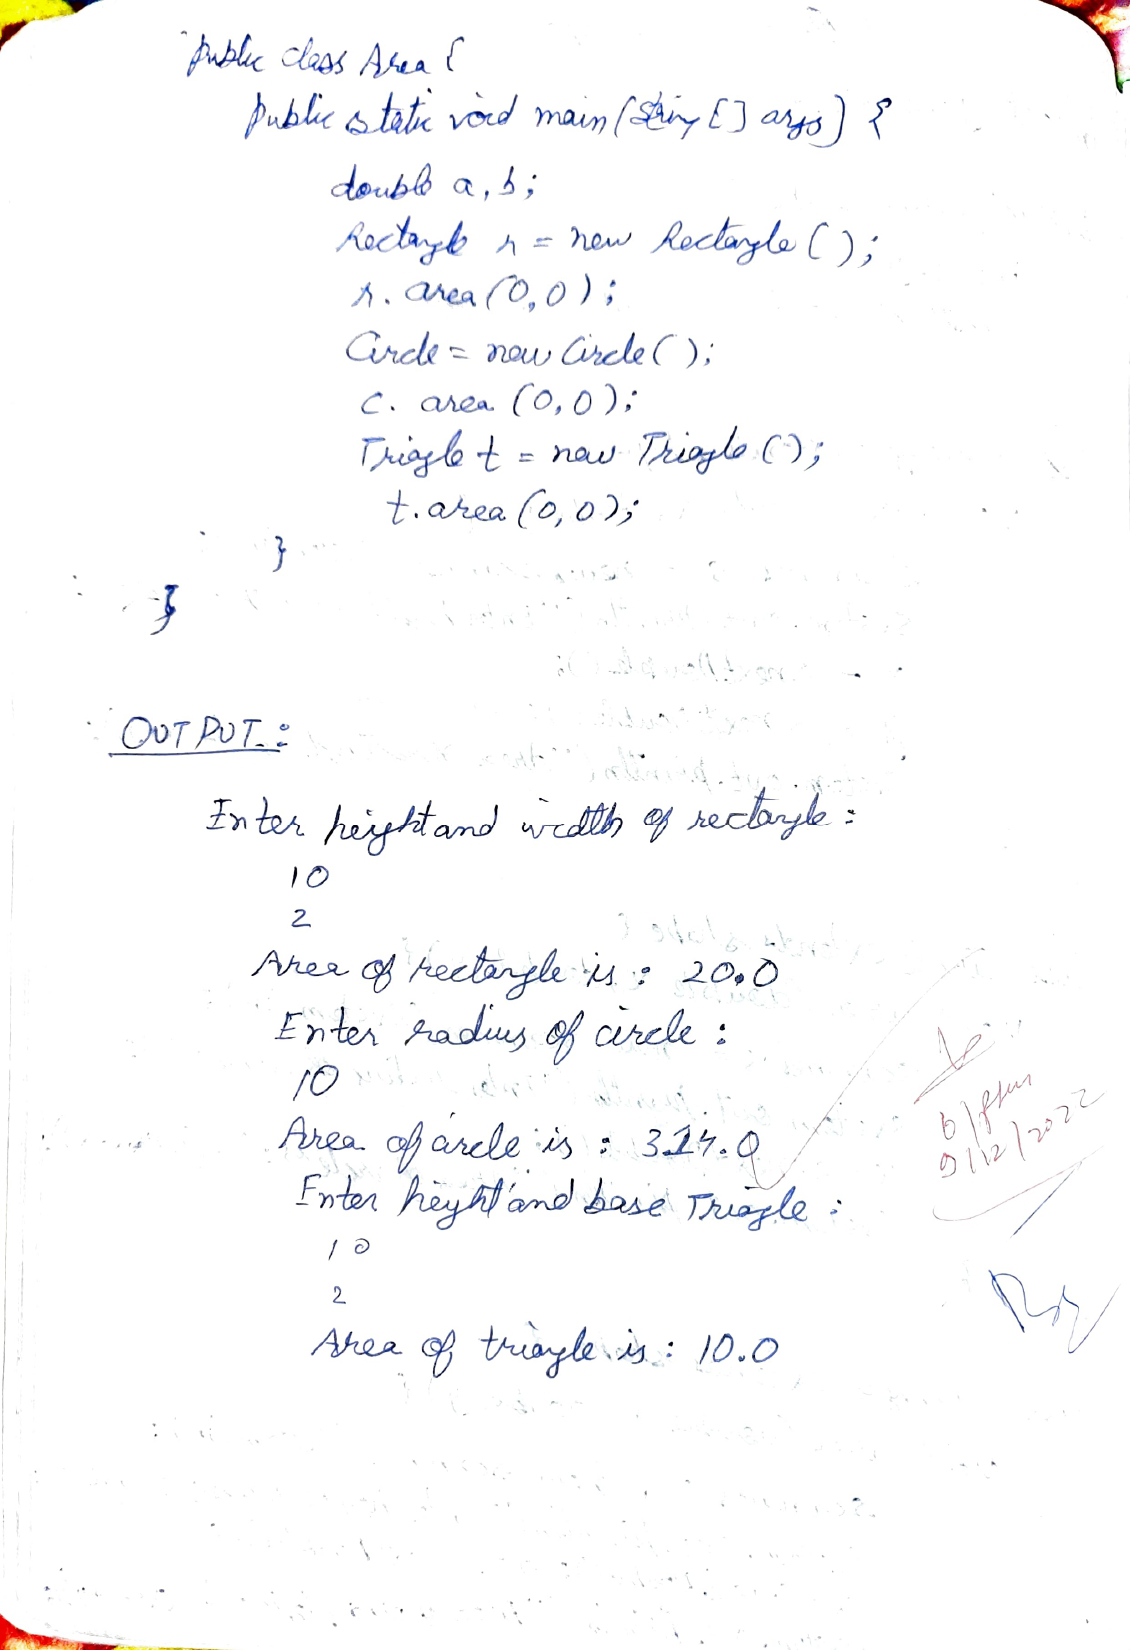 public class Area {
public static void main(String [] args) {
double a, b;
Rectangle r = new Rectangle ( );
r. area (0,0) ;
Circle = new Circle ( );
c. area (0,0);
Triagle t = new Triagle ( );
t. area (0,0);
}
}
OUTPUT :
Enter height and width of rectangle :
10
2
Area of rectangle is : 20.0
Enter radius of circle :
10
Area of circle is : 314.0
Enter height and base Triagle :
10
2
Area of triagle is : 10.0
9/12/2022